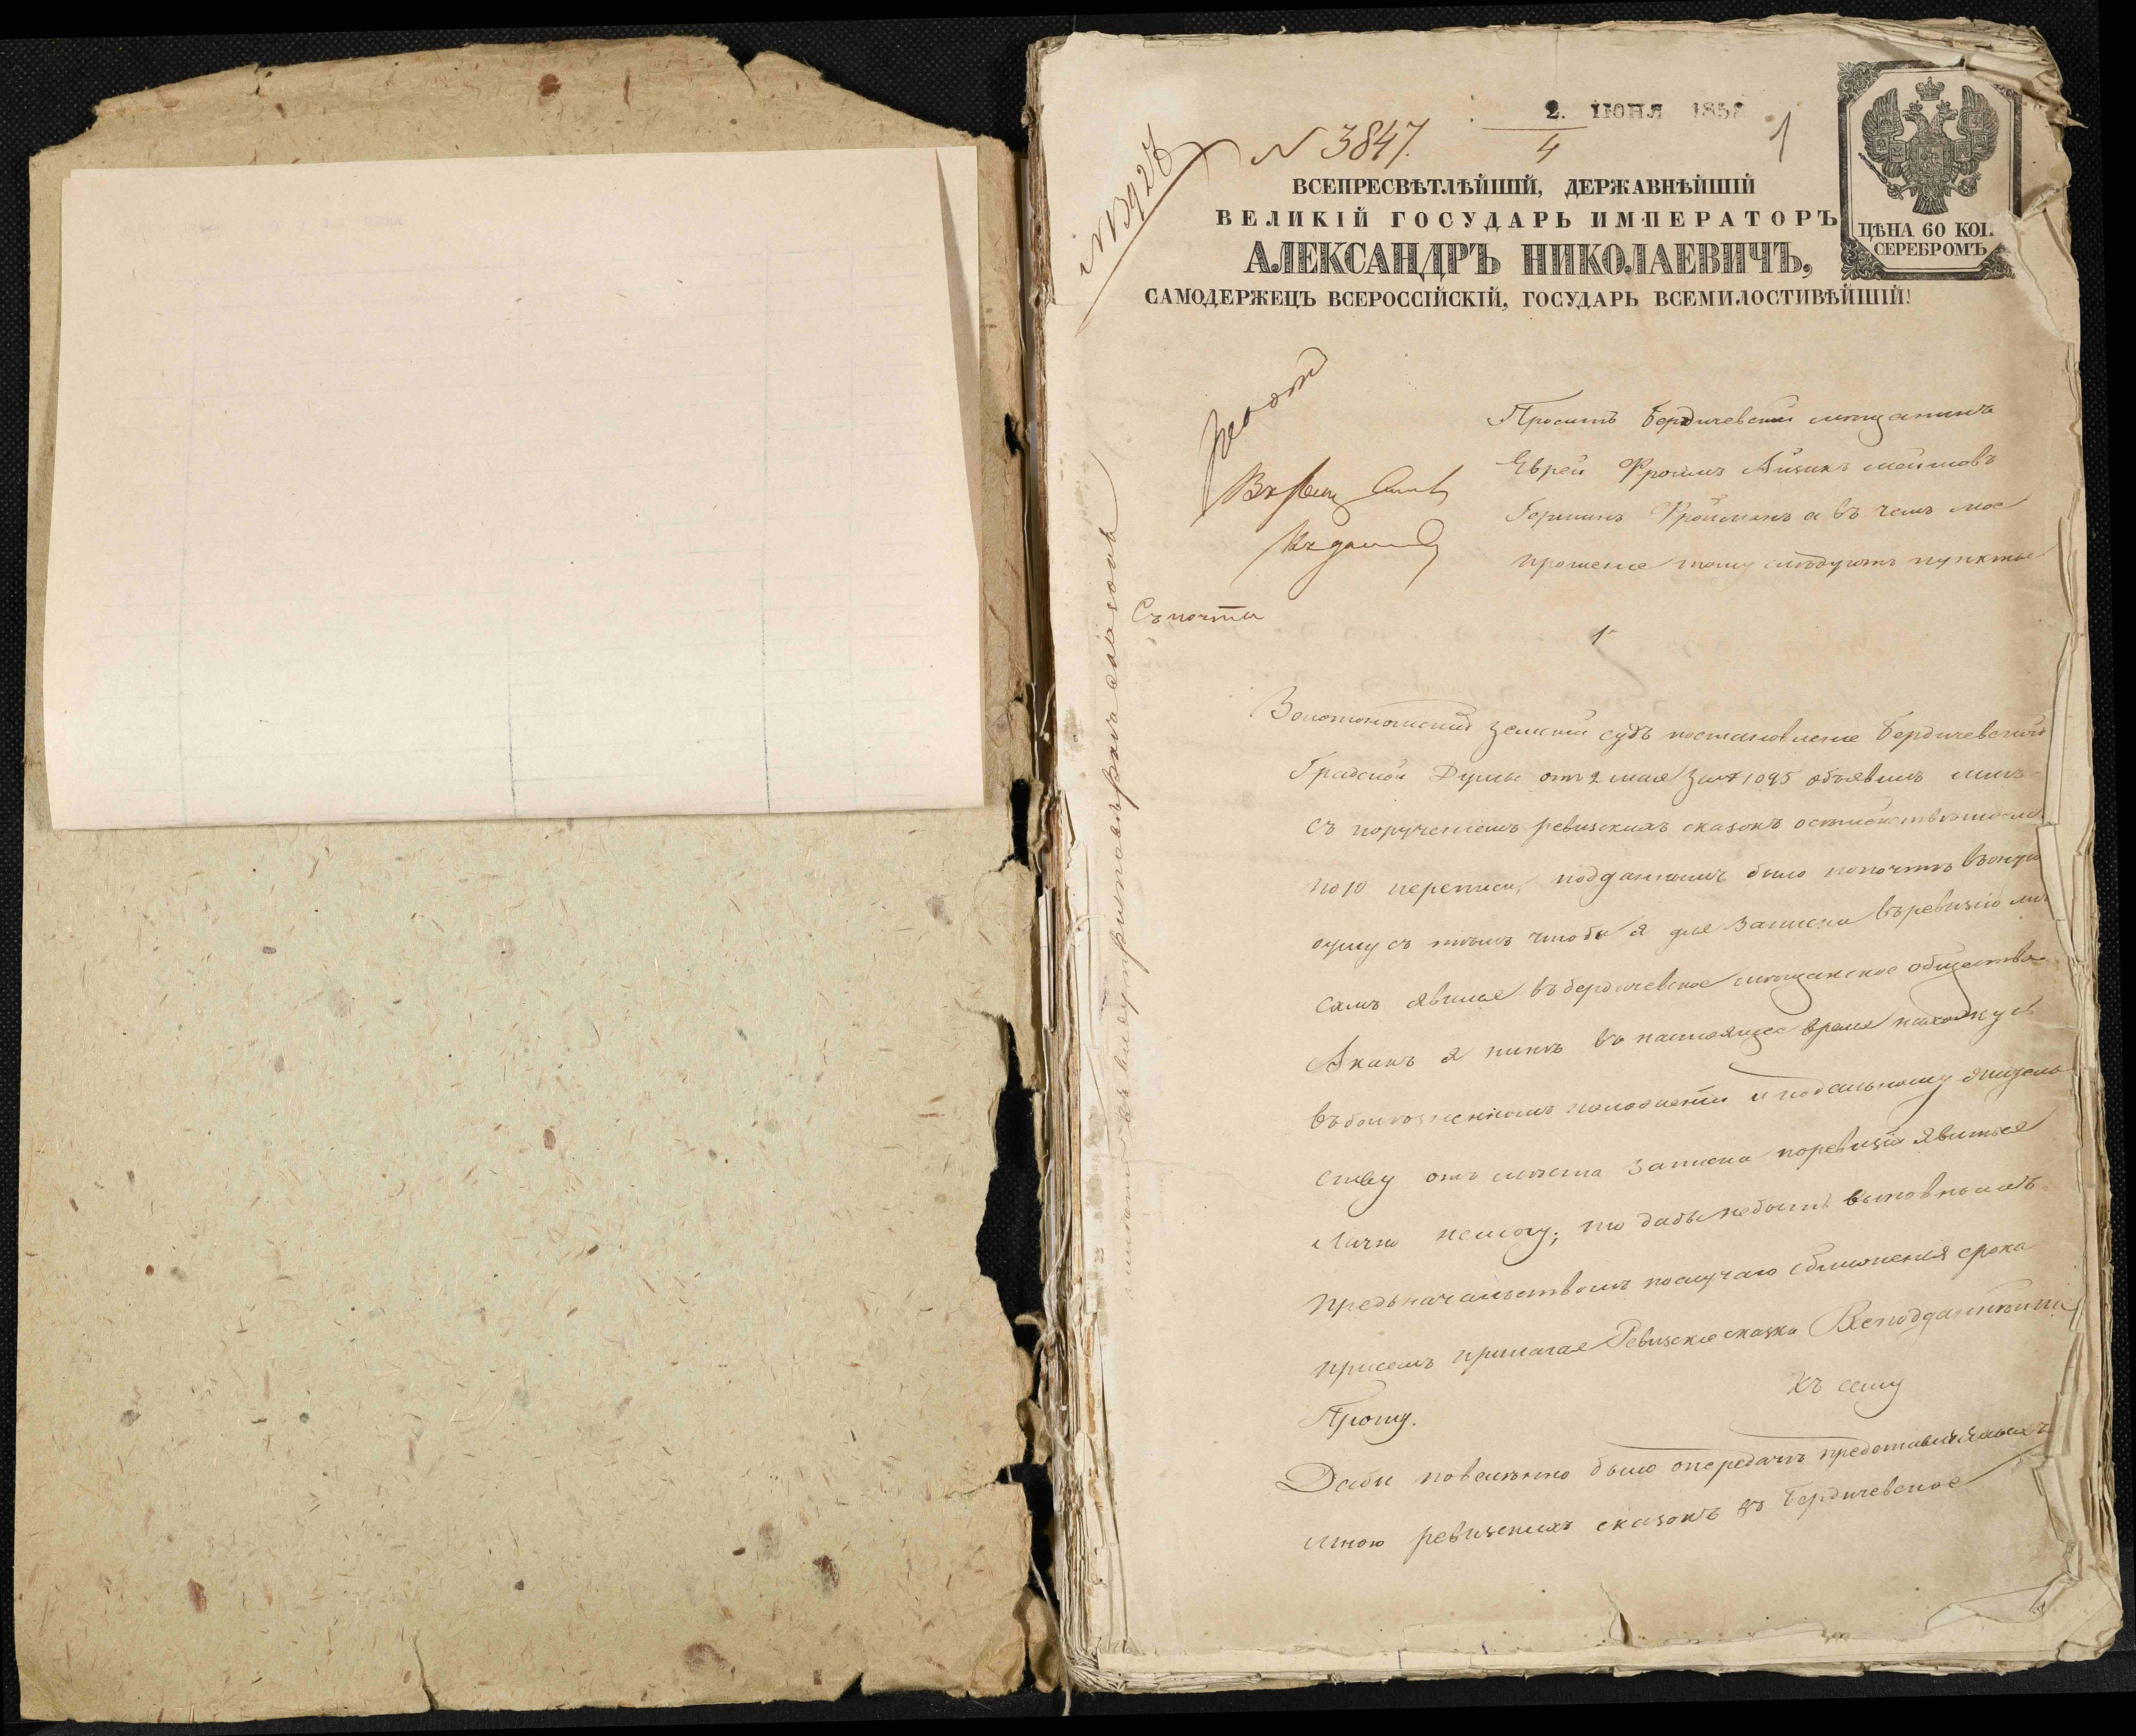 2. ІЮНЯ 1858
4
1
N 3847.
N 13928
ВСЕПРЕСВѢТЛѢЙШІЙ, ДЕРЖАВНѢЙШІЙ
ВЕЛИКІЙ ГОСУДАРЬ ИМПЕРАТОРЪ
АЛЕКСАНДРЪ НИКОЛАЕВИЧЪ,
САМОДЕРЖЕЦЪ ВСЕРОССІЙСКІЙ, ГОСУДАРЬ ВСЕМИЛОСТИВѢЙШІЙ!
ЦѢНА 60 КОП.
СЕРЕБРОМЪ
Проситъ Бердичевскій мѣщанинъ
Еврей Фроимъ Айзикъ
Фройманъ а въ чемъ мое
прошеніе тому слѣдуютъ пункты
Съ почты
1е
Золотоношскій Земскій судъ постановленіе Бердичевской
Градской Думы отъ 2 мая за № 1095 объявилъ мнѣ
съ порученіемъ ревизскихъ сказокъ о семействѣ моемъ
по 10 переписи, поданныхъ было по почтѣ въ оную
думу съ тѣмъ чтобы я для записки въ ревизію
самъ явился въ бердичевское мѣщанское общество
А какъ я нынѣ въ настоящее время нахожусь
въ болѣзненномъ положеніи и по дальному
отъ мѣста записки по ревизіи явиться
лично немогу; то дабы небыть виновнымъ
предъ начальствомъ по случаю срока
присемъ прилагая Ревизскіе сказки Всеподданнѣйше
Прошу.
Къ сему
Дабы повелѣно было о передачѣ представляемыхъ
мною ревизскихъ сказокъ въ Бердичевское